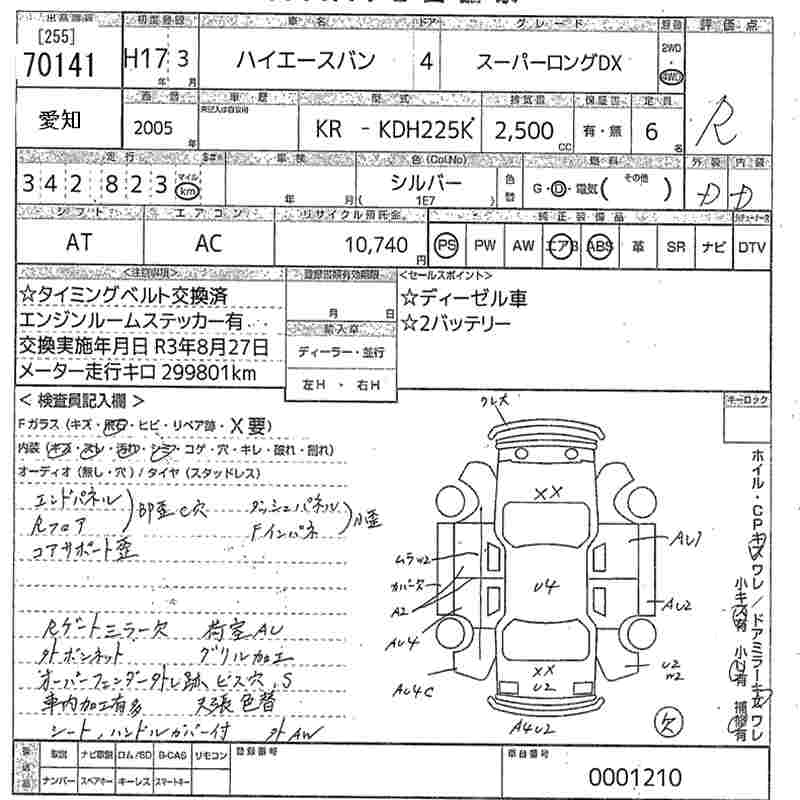 初度登録 車名 ドア グレード 評価点
[255]
70141 H17年 3月 ハイエースバン 4 スーパーロングDX 2WD 4WD R
車歴 型式 排気量 保証書 定員
愛知 2005年 KR - KDH225K 2,500cc 有・無 6名
走行 車検 色(Col.No) 燃料 外装 内装
342823 マイル km 年 月 シルバー ( 1E7 ) 色替 G・D・電気( その他 ) D D
シフト エアコン リサイクル預託金 純正装備品
AT AC 10,740円 PS PW AW エアB ABS 革 SR ナビ DTV
<注意事項> 登録書類有効期限 <セールスポイント>
☆タイミングベルト交換済 月 日 ☆ディーゼル車
エンジンルームステッカー有 輸入車 ☆2バッテリー
交換実施年月日 R3年8月27日 ディーラー・並行
メーター走行キロ 299801km 左H ・ 右H
<検査員記入欄> キーロック
Fガラス(キズ・飛石・ヒビ・リペア跡・X要)
内装(キズ・スレ・汚れ・シミ・コゲ・穴・キレ・破れ・割れ)
オーディオ(無し・穴)/タイヤ(スタッドレス)
エンドパネル
Rフロア
部歪C穴
ダッシュパネル
Fインパネ
小歪
コアサポート歪
Rゲートミラー欠 荷室AU
外ボンネット グリル加工
オーバーフェンダー外し跡、ビス穴、S
車内加工有多 又張色替
シート、ハンドルカバー付 外AW
XX
AU1
ムラW2
カバー欠
U4
A2
AU2
AU4
AU4C
XX
U2
U2
W2
A4U2
欠
ホイル・CPキズワレ/ドアミラーキズワレ
小キズ有 小U有 補修有
取説 ナビ取説 ロム/SD B-CAS リモコン 登録番号 車台番号
ナンバー スペアキー キーレス スマートキー 0001210